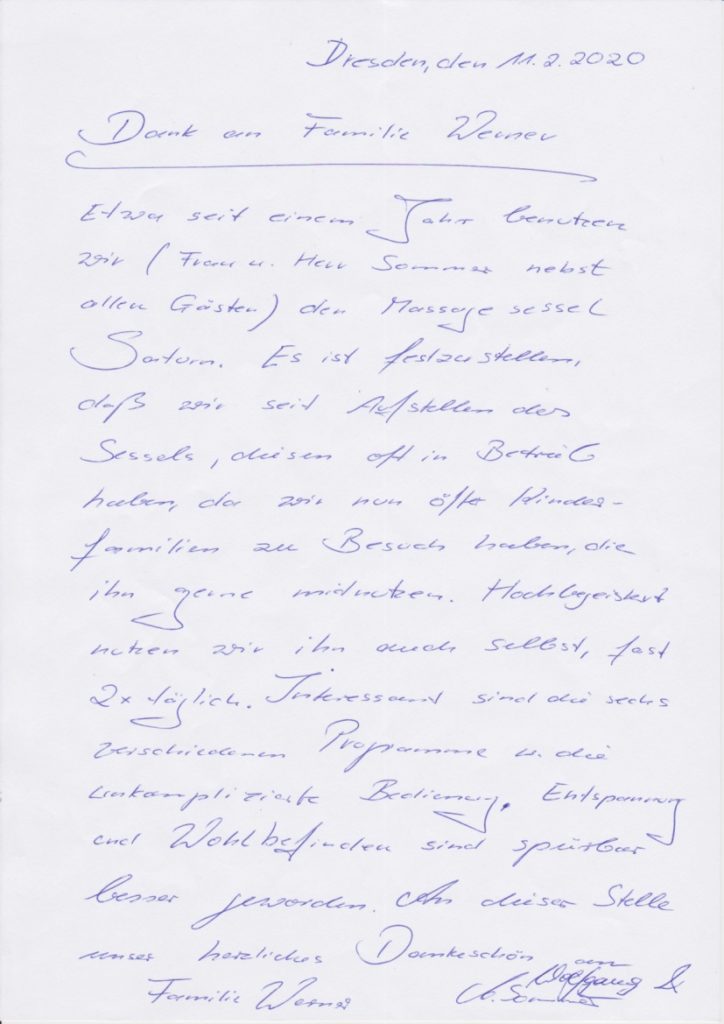 Dresden, den 11.2.2020
Dank an Familie Werner
Etwa seit einem Jahr benutzen
wir (Frau u. Herr Sommer nebst
allen Gästen) den Massagesessel
Saturn. Es ist festzustellen,
daß wir seit Aufstellen des
Sessels, diesen oft in Betrieb
haben, da wir nun öfte Kinder-
familien zu Besuch haben, die
ihn gerne midnutzen. Hochbegeistert
nutzen wir ihn auch selbst, fast
2x täglich. Interessant sind die sechs
verschiedenen Programme u. die
unkomplizierte Bedienung. Entspannung
und Wohlbefinden sind spürbar
besser geworden. An dieser Stelle
unser herzliches Dankeschön an
Familie Werner Wolfgang &
Sommer